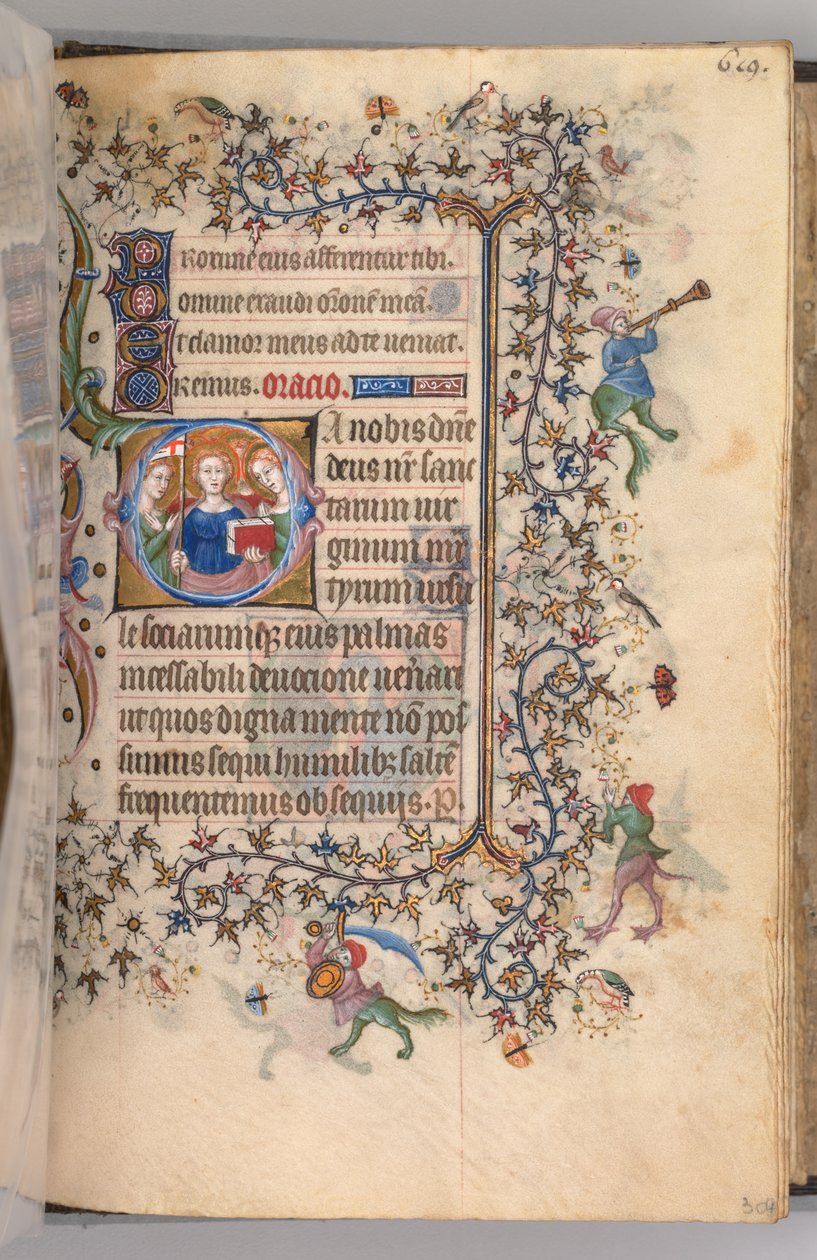 629.
Proxime eius afferentur tibi.
Domine exaudi orōnē meā.
Et clamor meus ad te ueniat.
Oremus. Oracio.
DA nobis dn̄e
deus nr̄ sanc
tarum uir
ginum mr̄
tyrum ursu
le sociarumqꝫ eius palmas
incessabili deuocione uen̄ari
ut quos digna mente nō pos
sumus sequi humilibꝫ saltē
frequentemus obsequijs. P.
309